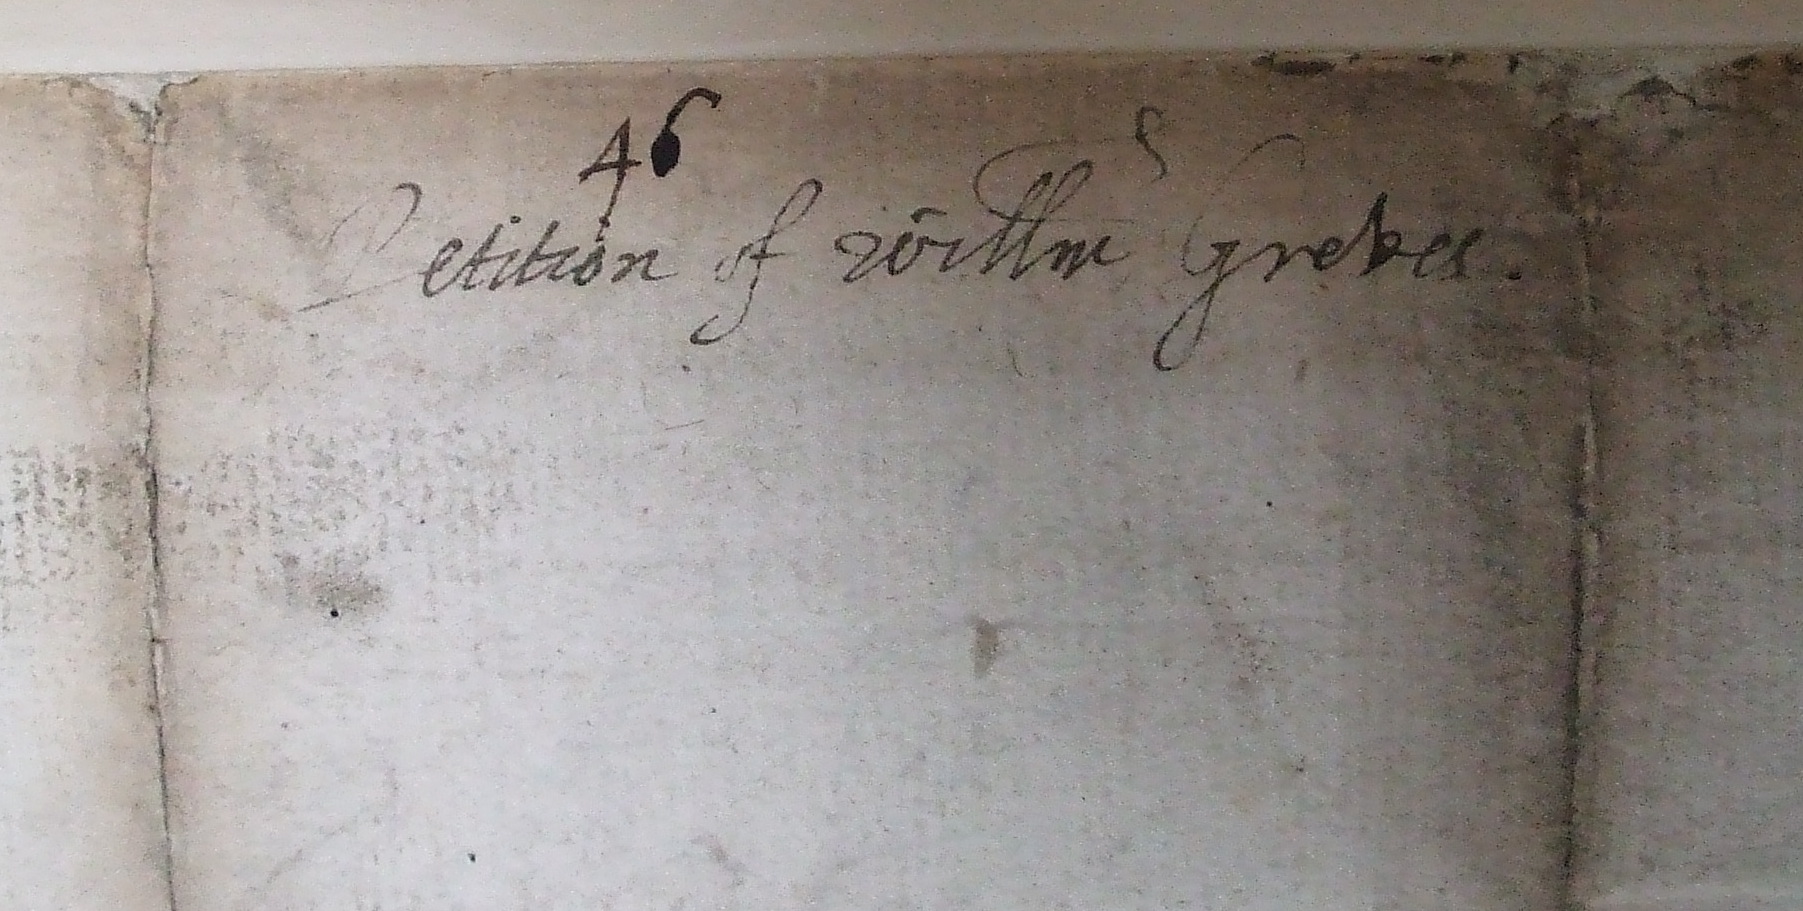 46
Petition of Willm Grebes.